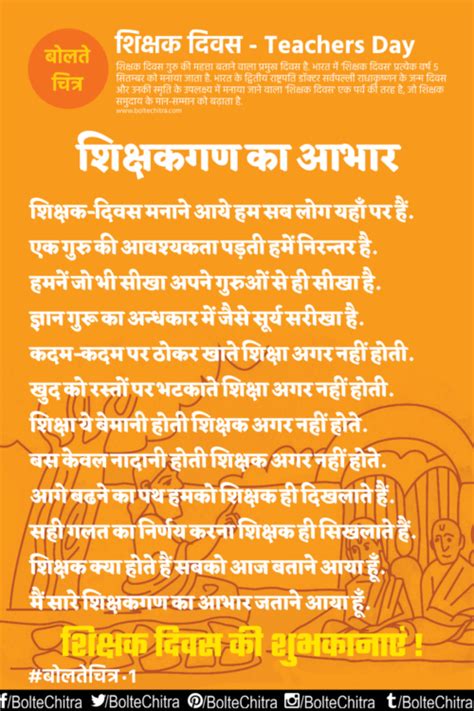 बोलते
चित्र
शिक्षक दिवस - Teachers Day
शिक्षक दिवस गुरु की महत्ता बताने वाला प्रमुख दिवस है. भारत में 'शिक्षक दिवस' प्रत्येक वर्ष 5
सितम्बर को मनाया जाता है. भारत के द्वितीय राष्ट्रपति डॉक्टर सर्वपल्ली राधाकृष्णन के जन्म दिवस
और उनकी स्मृति के उपलक्ष्य में मनाया जाने वाला 'शिक्षक दिवस' एक पर्व की तरह है, जो शिक्षक
समुदाय के मान-सम्मान को बढ़ाता है.
www.boltechitra.com
शिक्षकगण का आभार
शिक्षक-दिवस मनाने आये हम सब लोग यहाँ पर हैं.
एक गुरु की आवश्यकता पड़ती हमें निरन्तर है.
हमनें जो भी सीखा अपने गुरुओं से ही सीखा है.
ज्ञान गुरू का अन्धकार में जैसे सूर्य सरीखा है.
कदम-कदम पर ठोकर खाते शिक्षा अगर नहीं होती.
खुद को रस्तों पर भटकाते शिक्षा अगर नहीं होती.
शिक्षा ये बेमानी होती शिक्षक अगर नहीं होते.
बस केवल नादानी होती शिक्षक अगर नहीं होते.
आगे बढने का पथ हमको शिक्षक ही दिखलाते हैं.
सही गलत का निर्णय करना शिक्षक ही सिखलाते हैं.
शिक्षक क्या होते हैं सबको आज बताने आया हूँ.
मैं सारे शिक्षकगण का आभार जताने आया हूँ.
शिक्षक दिवस की शुभकानाएं !
#बोलतेचित्र-1
f/BolteChitra /BolteChitra /BolteChitra /BolteChitra t/BolteChitra